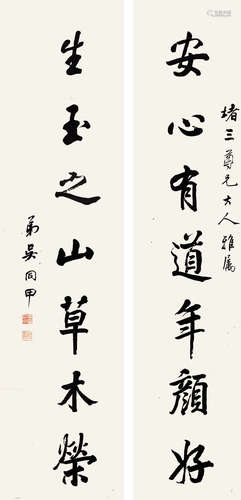 堵三尊兄大人雅属
安心有道年顏好
生玉之山草木榮
弟吴同甲